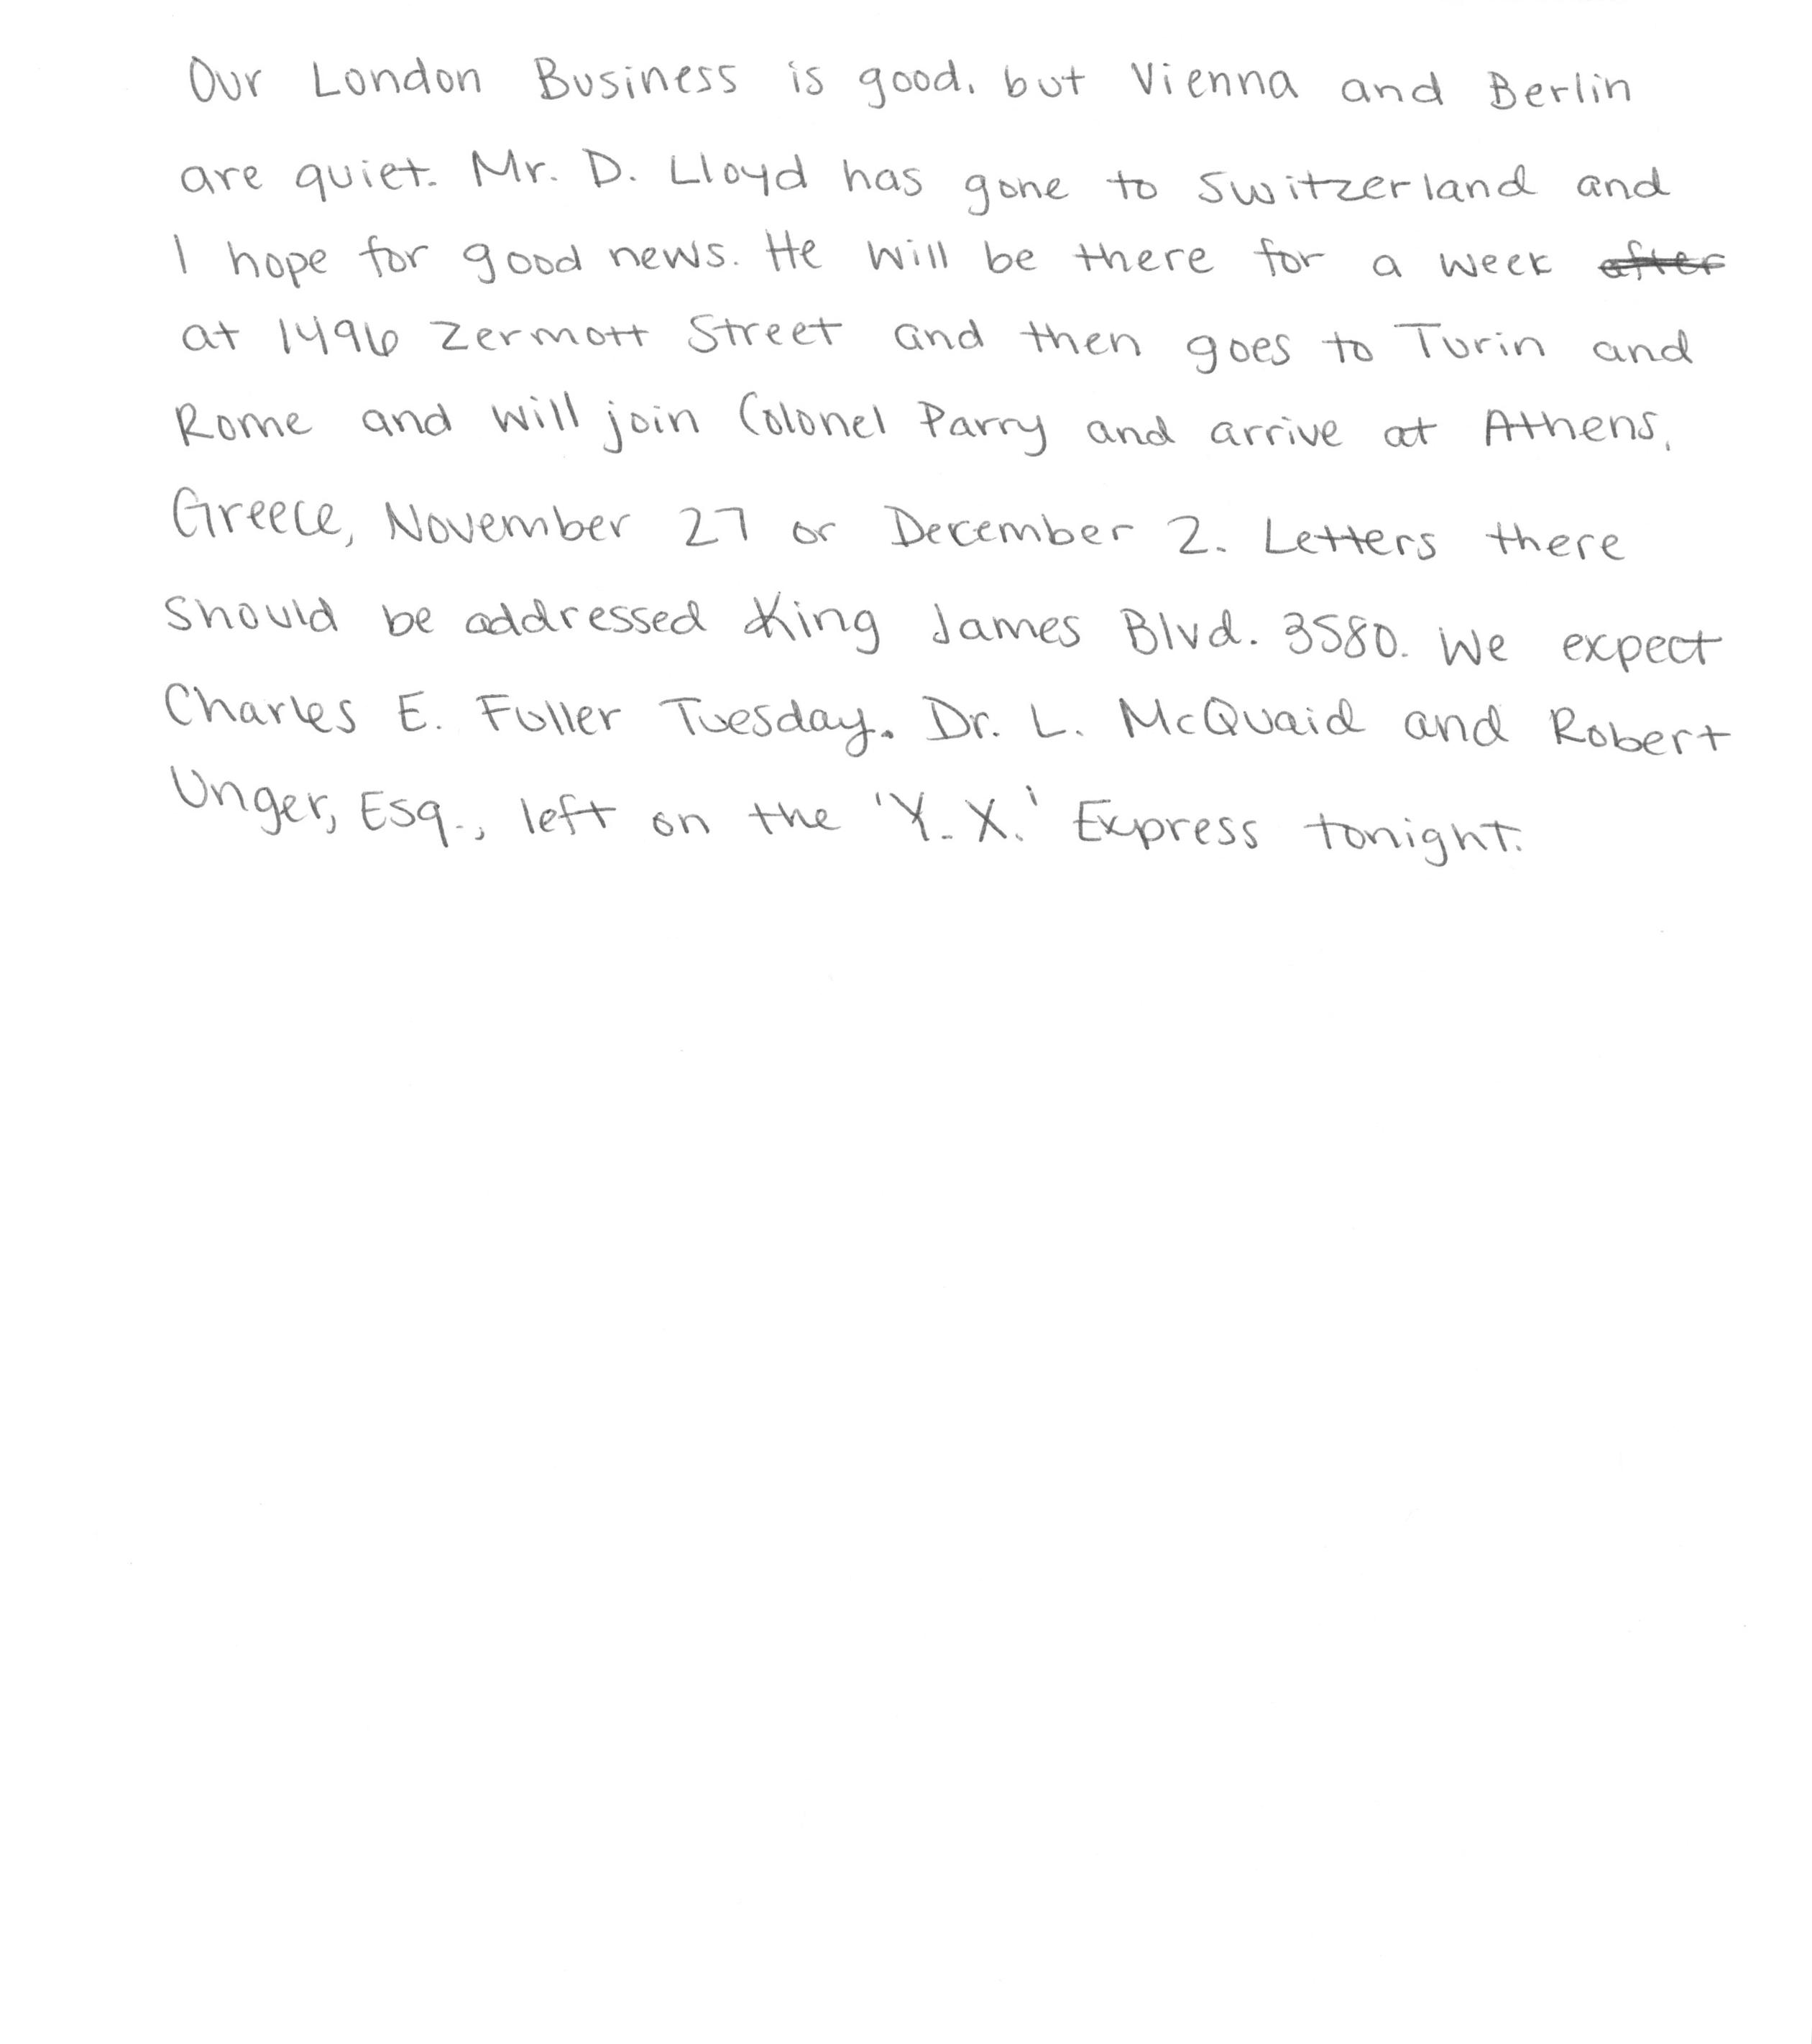 Our London Business is good, but Vienna and Berlin
are quiet. Mr. D. Lloyd has gone to Switzerland and
I hope for good news. He will be there for a week after
at 1496 Zermott Street and then goes to Turin and
Rome and will join Colonel Parry and arrive at Athens,
Greece, November 27 or December 2. Letters there
should be addressed King James Blvd. 3580. We expect
Charles E. Fuller Tuesday. Dr. L. McQuaid and Robert
Unger, Esq., left on the 'Y. X.' Express tonight.